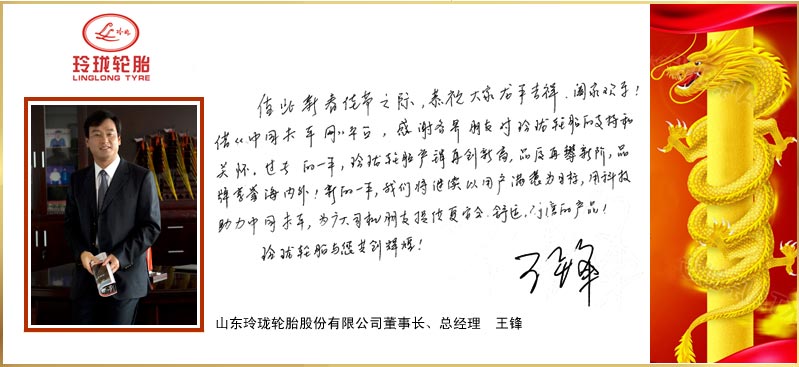 玲珑轮胎
LINGLONG TYRE
值此新春佳节之际，恭祝大家龙年吉祥、阖家欢乐！
借《中国卡车网》平台，感谢各界朋友对玲珑轮胎的支持和
关怀。过去的一年，玲珑轮胎产销再创新高，品质再攀新阶，品
牌享誉海内外！新的一年，我们将继续以用户满意为目标，用科技
助力中国卡车，为广大司机朋友提供更安全、舒适、可信的产品！
玲珑轮胎与您共创辉煌！
王锋
山东玲珑轮胎股份有限公司董事长、总经理 王锋